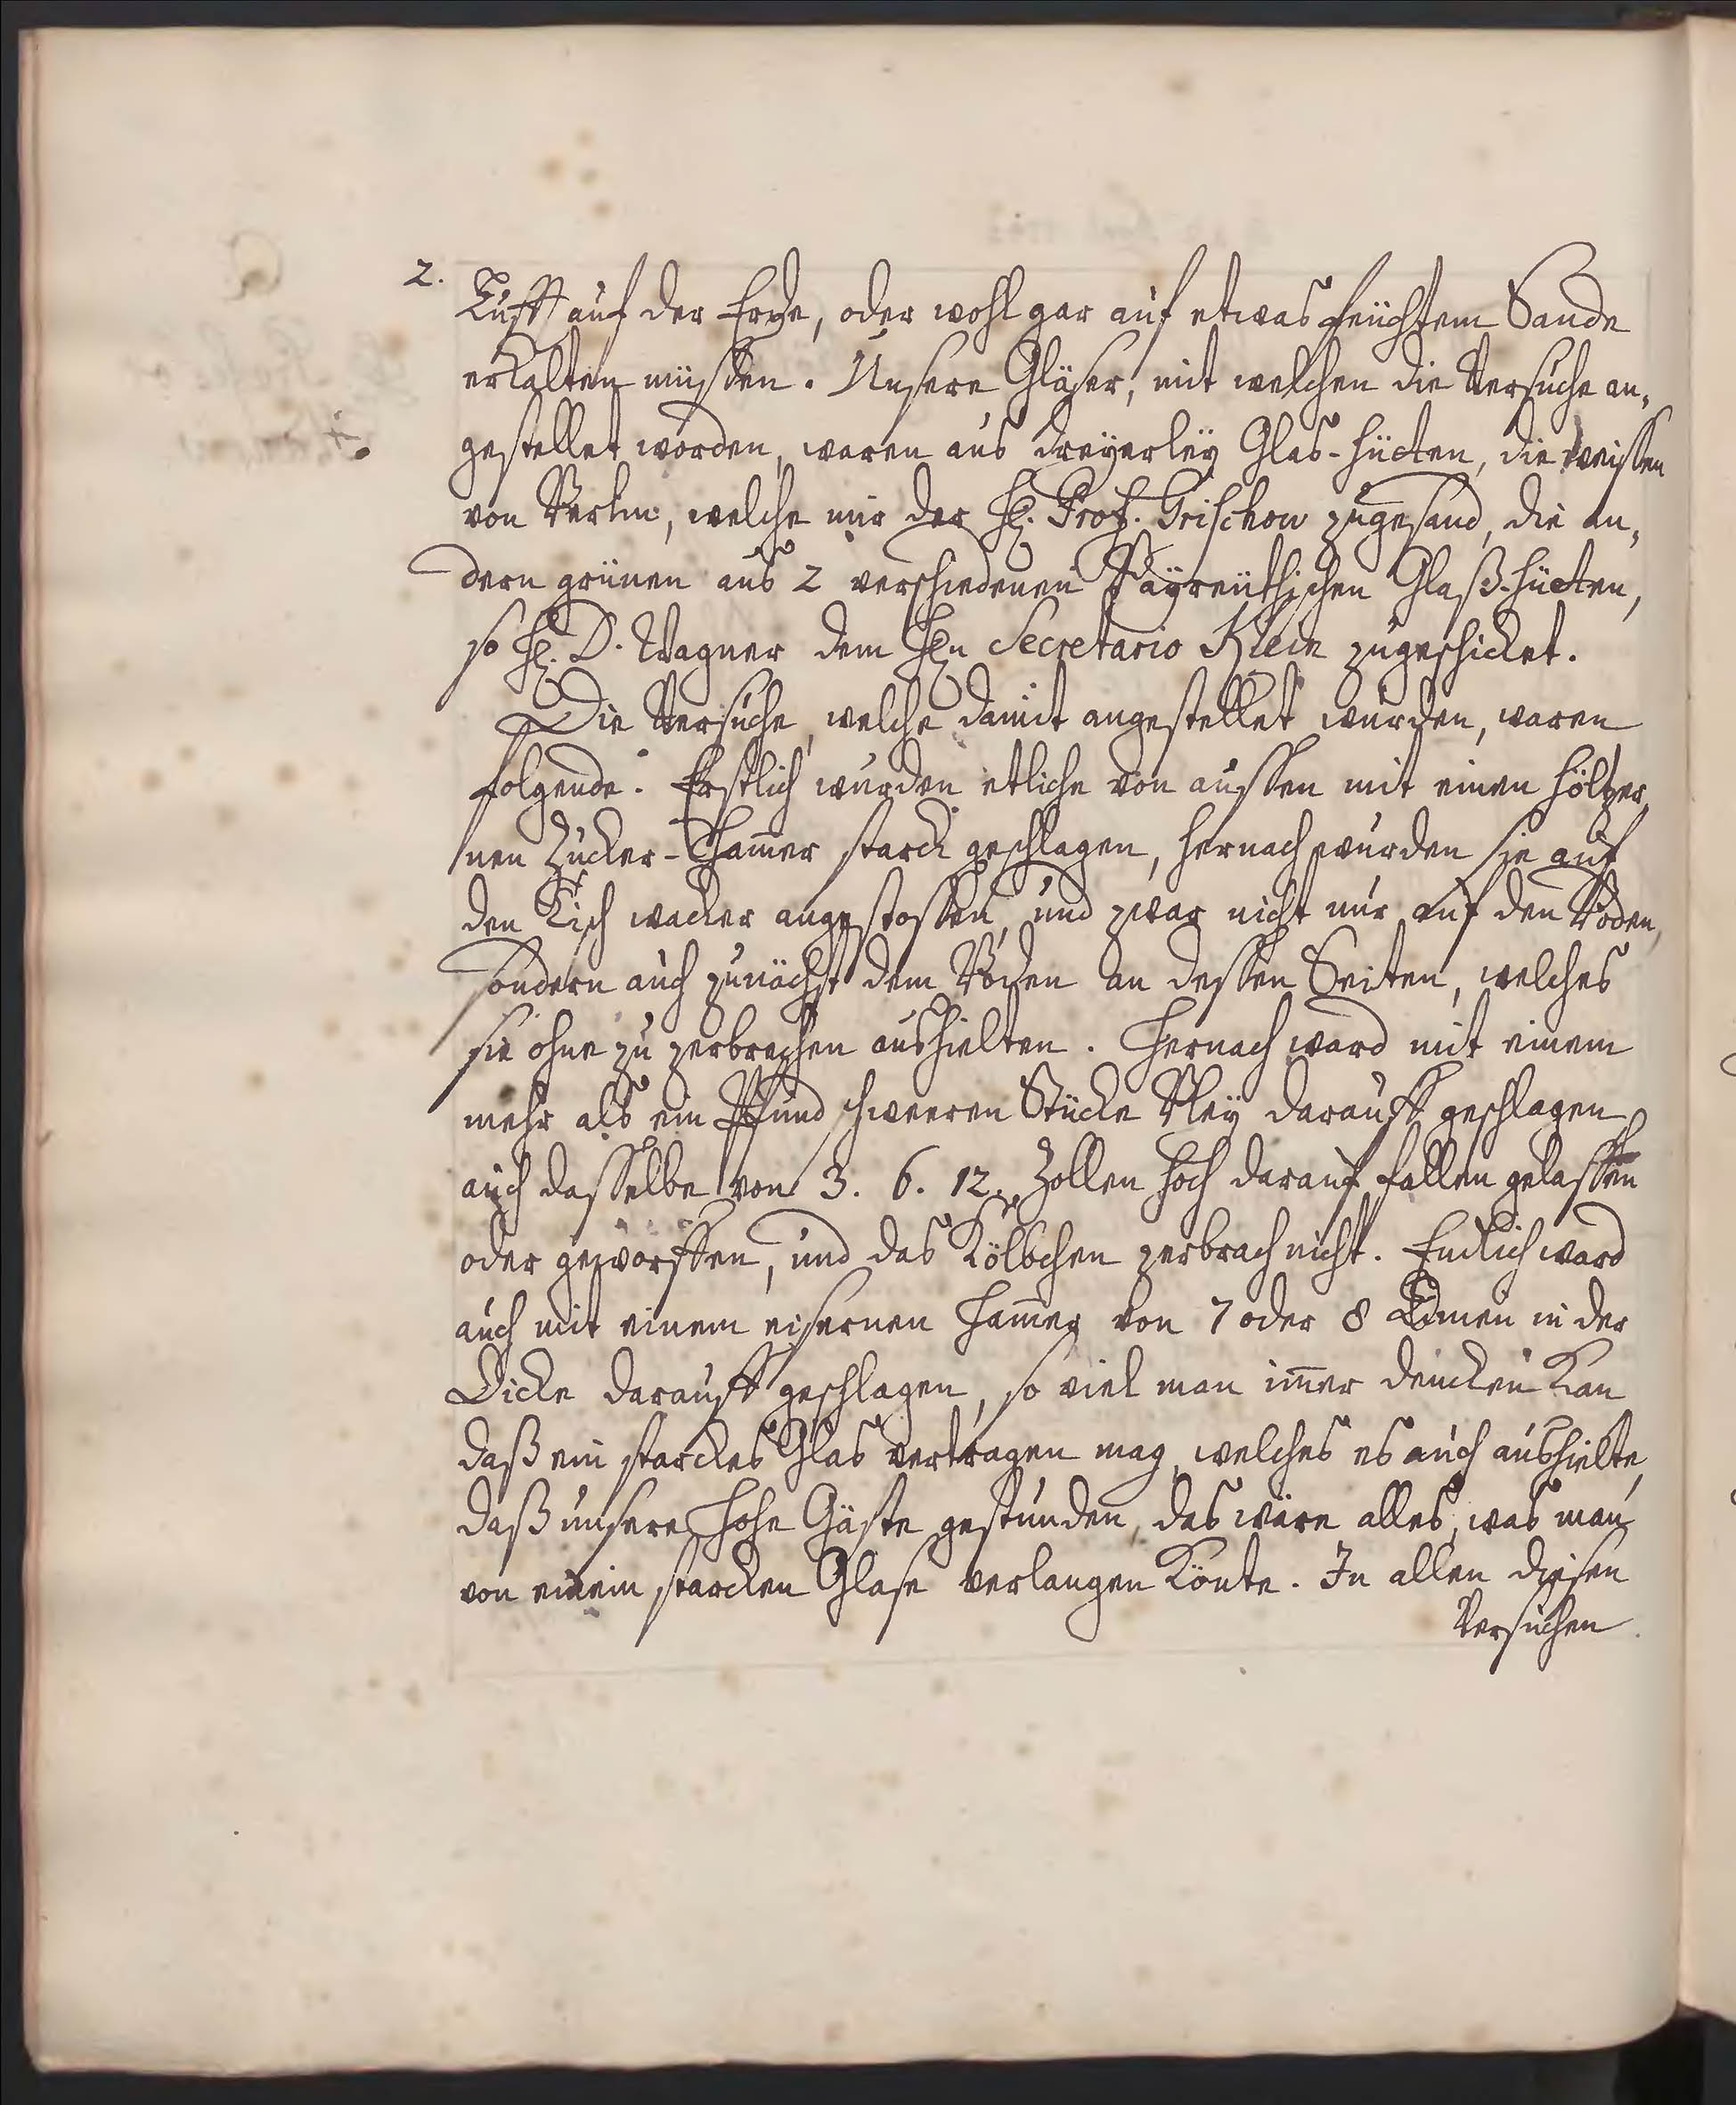 2.
Lufft auf der Erde, oder wohl gar auf etwas feuchtem Sande
erkalten müssen. Unsere Gläser, mit welchen die Versuche an,
gestellet worden, waren aus dreyerley Glas-Hütten, die weissen
von Berlin, welche mir der H. Prof. Grischow zugesand, die an,
dern grünen aus 2 verschiedenen Bäyreuthischen Glaß-Hütten,
so H. D. Wagner dem Hn Secretario Klein zugeschicket.
Die Versuche, welche damit angestellet wurden, waren
folgende. Erstlich wurden etliche von aussen mit einen höltzer,
nen Zucker-Ham̄er starck geschlagen, hernach wurden sie auf
den Tisch wacker angestossen, und zwar nicht nur auf den Boden,
sondern auch zunächst dem Boden an dessen Seiten, welches
sie ohne zu zerbrechen aushielten. Hernach ward mit einem
mehr als ein Pfund schweeren Stücke Bley darauff geschlagen
auch dasselbe von 3. 6. 12. Zollen hoch darauf fallen gelassen
oder geworffen, und das Kölbchen zerbrach nicht. Endlich ward
auch mit einem eisernen Ham̄er von 7 oder 8 Linien in der
Dicke darauff geschlagen, so viel man im̄er dencken kan
daß ein starckes Glas vertragen mag, welches es auch aushielte,
daß unsere Hohe Gäste gestunden, das wäre alles, was man
von einem starcken Glase verlangen könte. In allen diesen
Versuchen